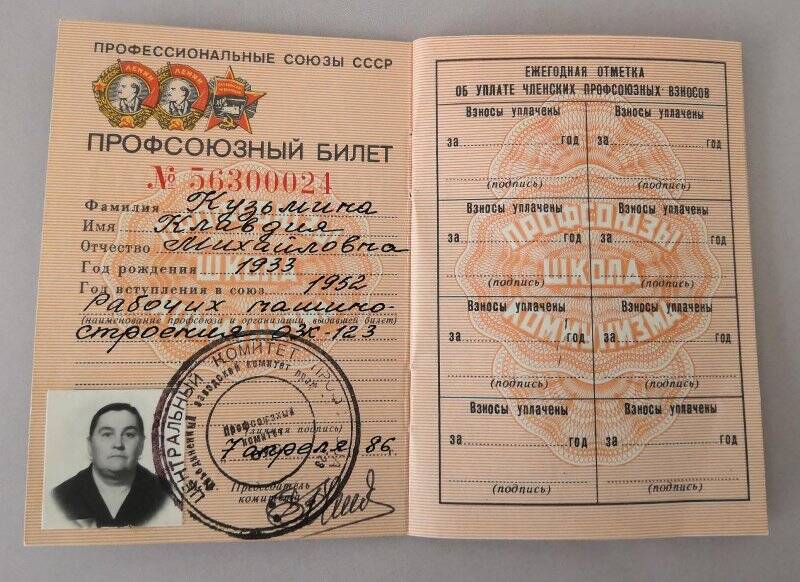 ПРОФЕССИОНАЛЬНЫЕ СОЮЗЫ СССР
ЛЕНИН ЛЕНИН
ПРОФСОЮЗНЫЙ БИЛЕТ
№ 56300024
Фамилия Кузьмина
Имя Клавдия
Отчество Михайловна
Год рождения 1933
Год вступления в союз 1952
рабочих машино-
(наименование профсоюза и организации, выдавшей билет)
строения ОЗХ-123
ЦЕНТРАЛЬНЫЙ КОМИТЕТ ПРОФ
заводской комитет
Профсоюзный
комитет
(личная подпись)
7 апреля 86
Председатель
комитета
ЕЖЕГОДНАЯ ОТМЕТКА
ОБ УПЛАТЕ ЧЛЕНСКИХ ПРОФСОЮЗНЫХ ВЗНОСОВ
Взносы уплачены Взносы уплачены
за год за год
(подпись) (подпись)
Взносы уплачены Взносы уплачены
за год за год
(подпись) (подпись)
Взносы уплачены Взносы уплачены
за год за год
(подпись) (подпись)
Взносы уплачены Взносы уплачены
за год за год
(подпись) (подпись)
ПРОФСОЮЗЫ
ШКОЛА
КОММУНИЗМА